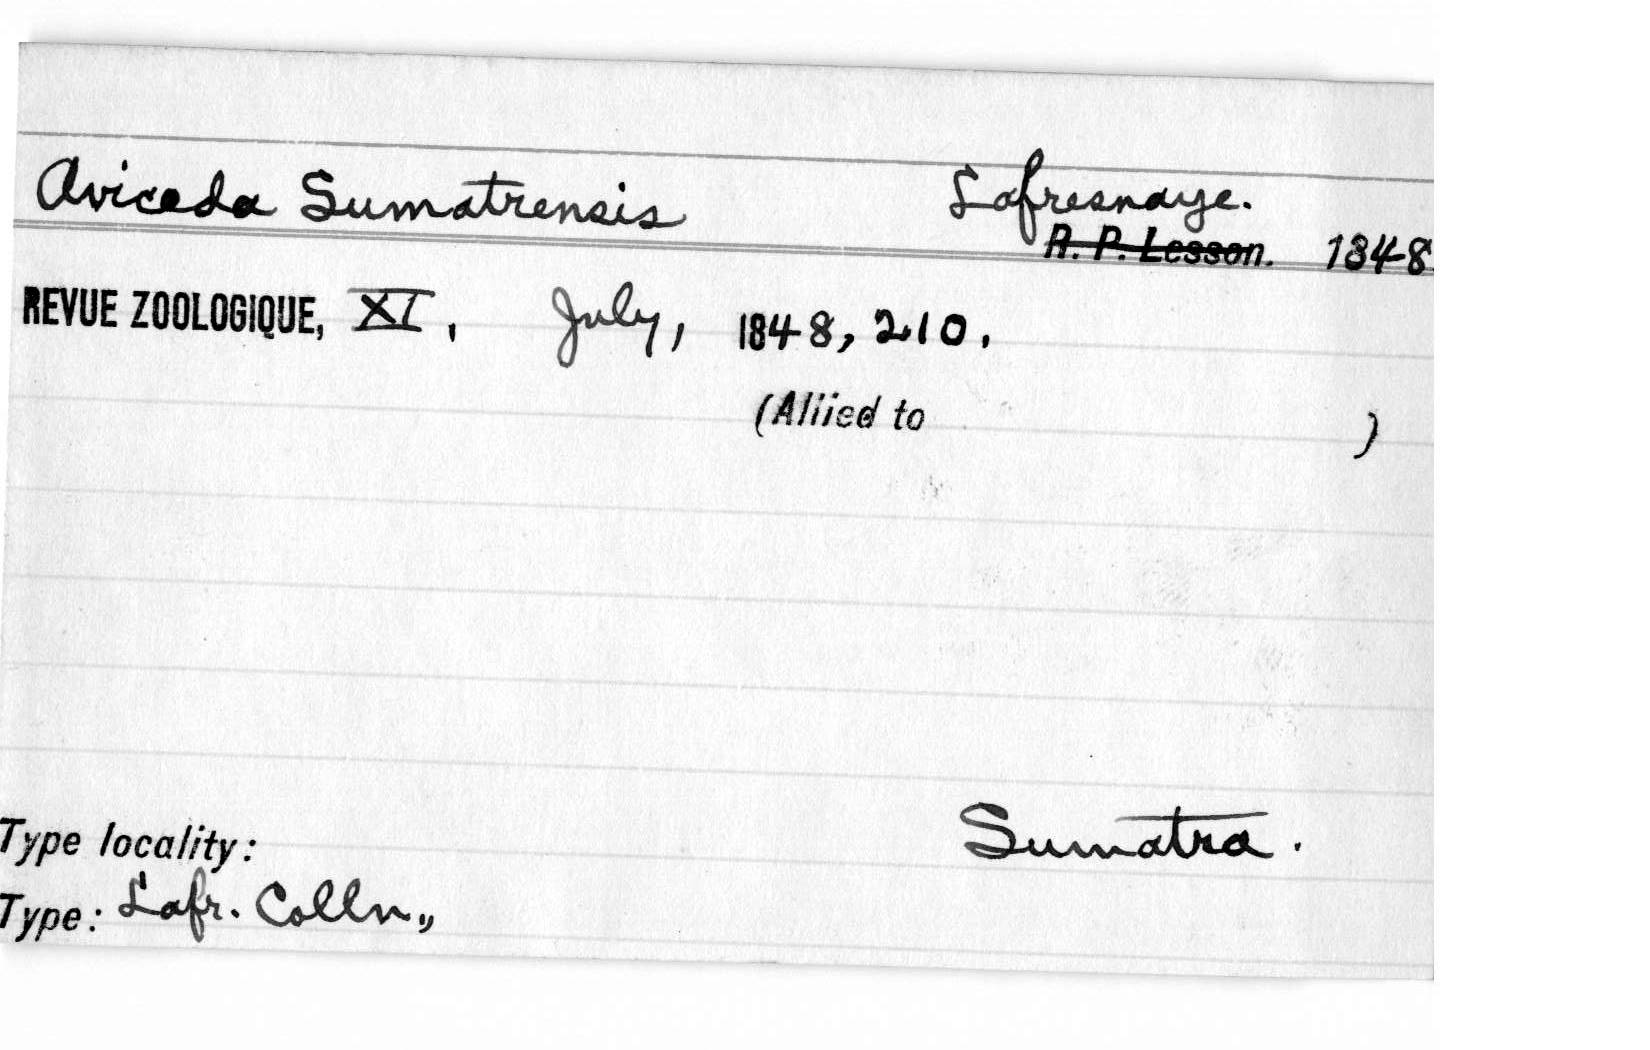 Aviceda Sumatrensis Lafresnaye.
R. P. Lesson. 1848
REVUE ZOOLOGIQUE, XI, July, 1848, 210.
(Allied to )
Type locality: Sumatra.
Type: Lafr. Colln.,